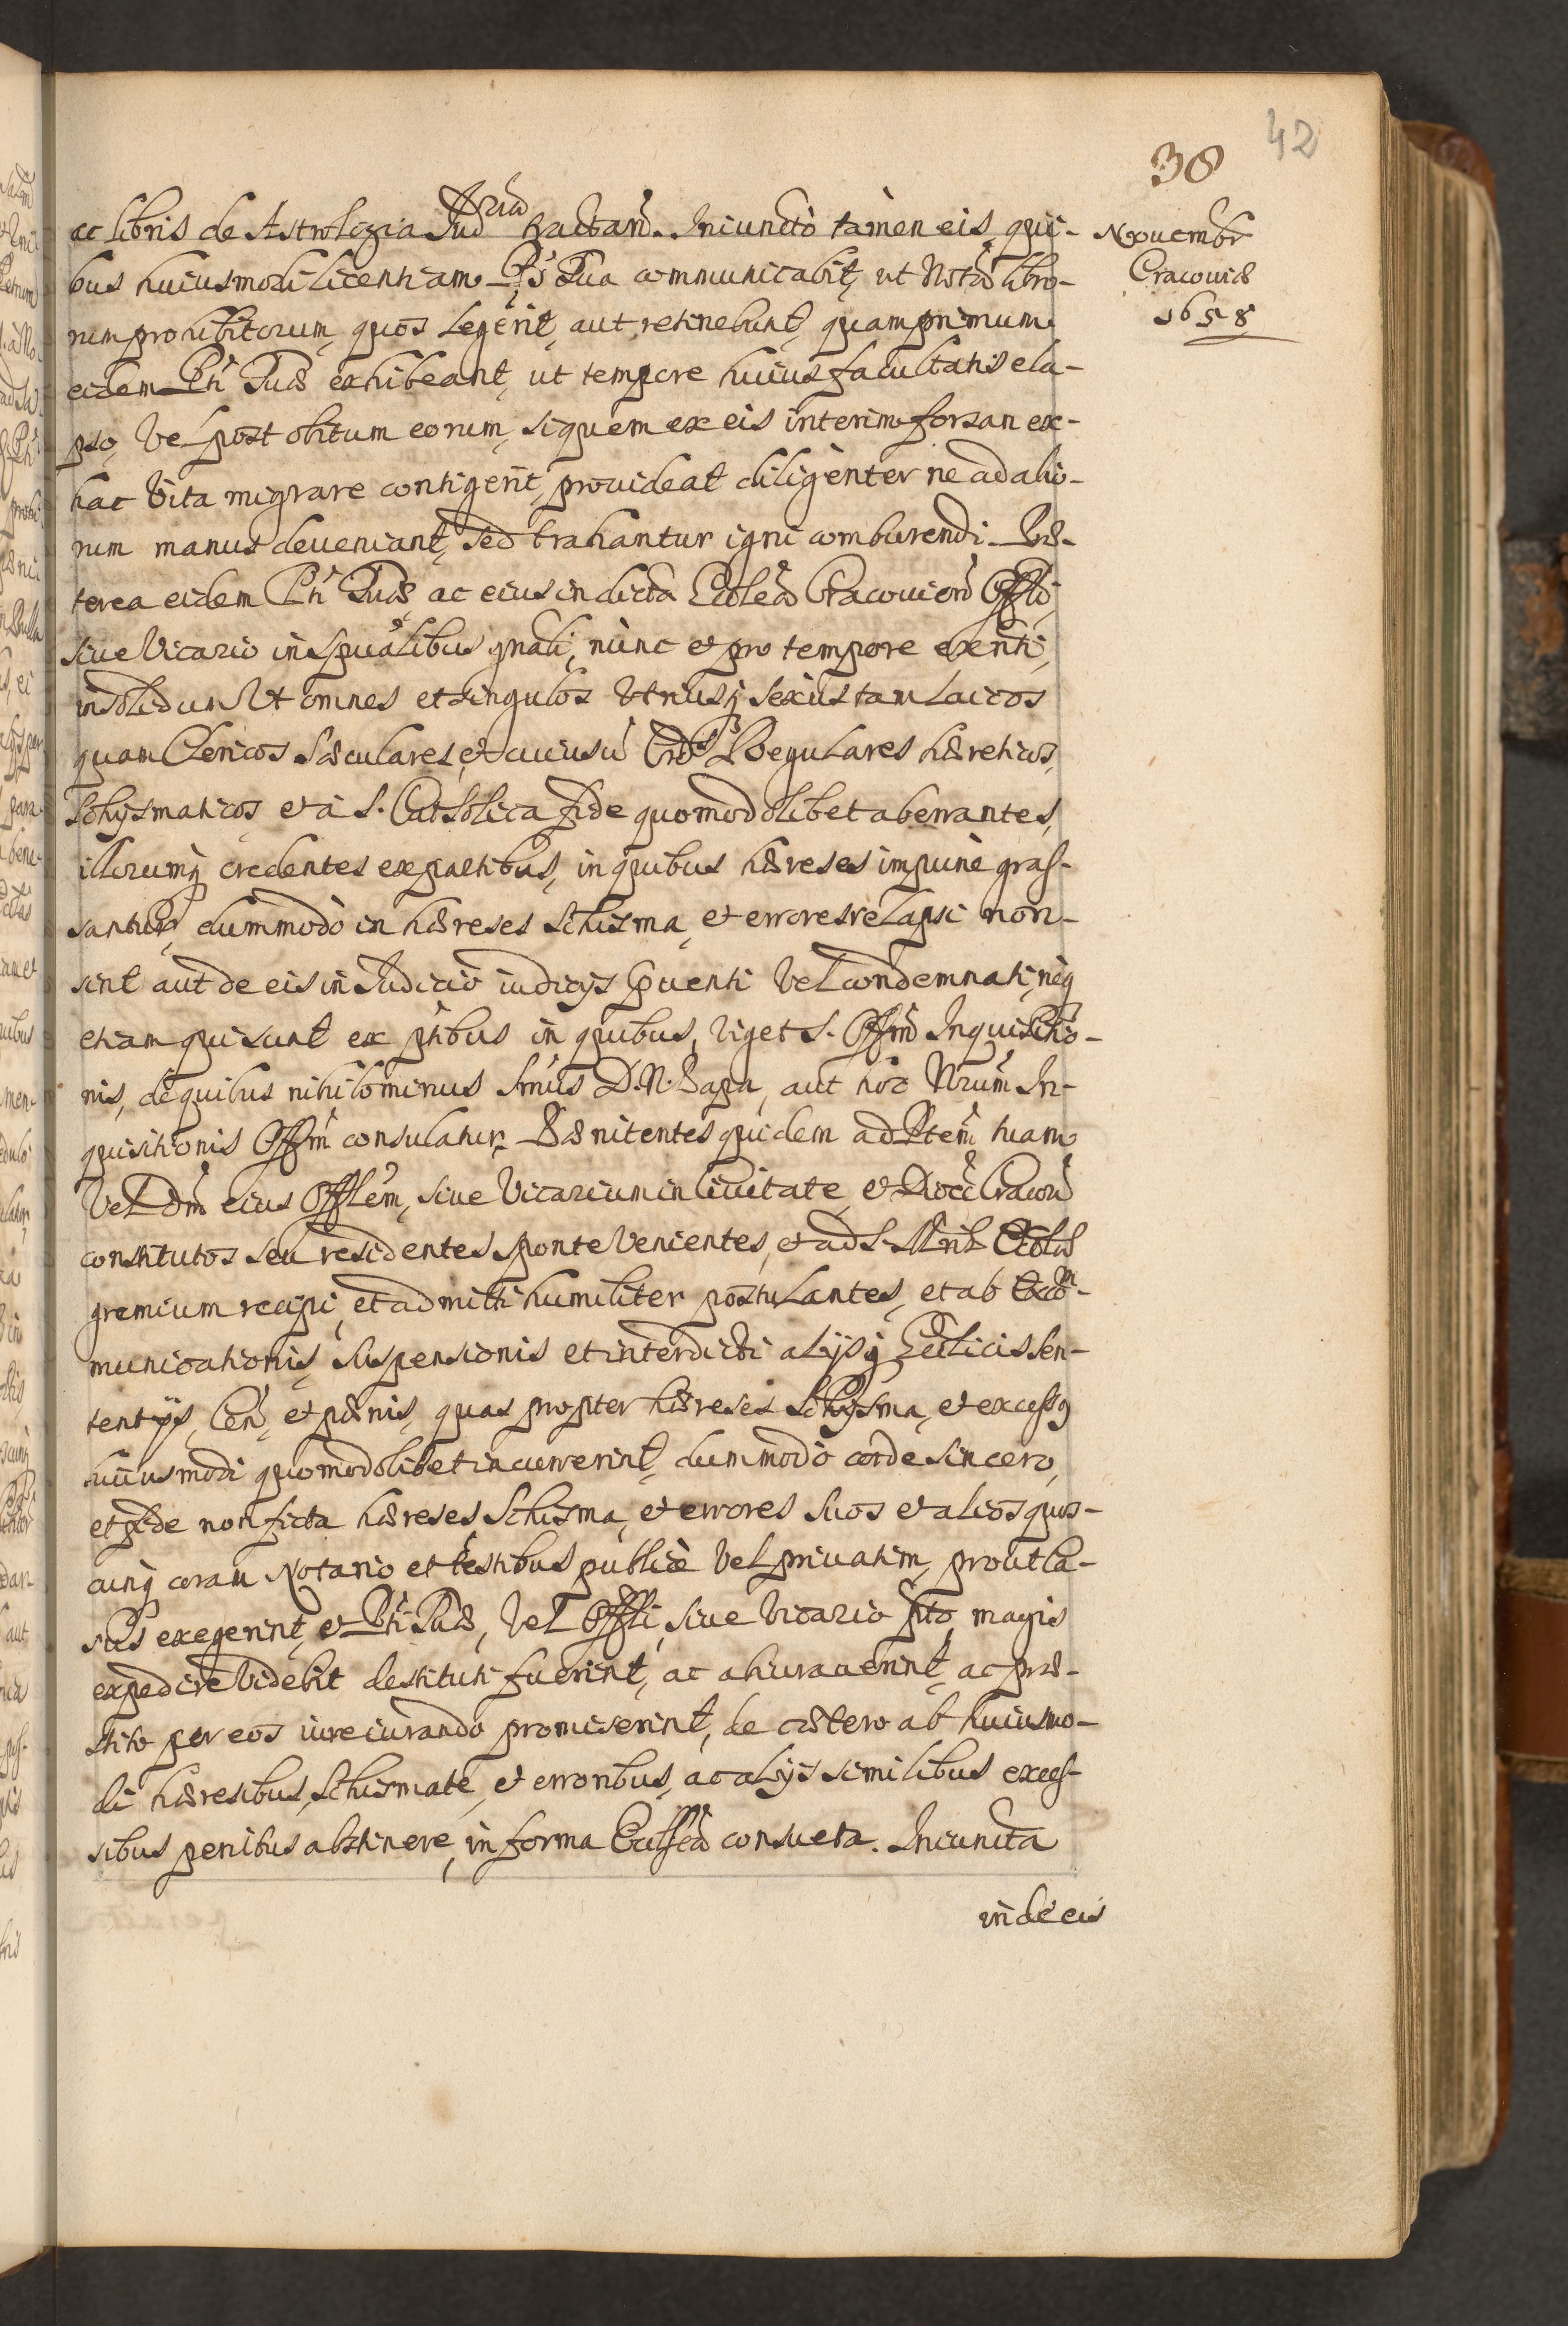 42
38
Nouembr
Cracouiæ
1658
ac libris de Astrologia Jud^ria tractan. Iniuncto tamen eis, qui-
bus huiusmodi licentiam P^s Tua communicabit, ut Notã libro-
rum prohibitorum, quos legerit, aut retinebunt, quamprimum
eidem Pti Tuæ exhibeant, ut tempore huius facultatis ela-
pso, vel post obitum eorum, siquem ex eis interim forsan ex
hac vita migrare contigerit, prouideat diligenter ne ad alio-
rum manus deueniant, sed trahantur igni comburendi. Præ-
terea eidem Pti Tuæ, ac eius in dicta Ecclea Cracouien Offli
siue Vicario in spualibus gnali, nunc et pro tempore exnti,
insolidum Ut omnes et singulos Utriusq sexus tam Laicos
quam Clericos Sæculares, et cuiusuis Ordis Regulares hæreticos,
Schysmaticos et à S. Catholica fide quomodolibet aberrantes,
illorumq credentes ex partibus, in quibus hæreses impunè gras-
santur, dummodò in hæreses Schisma, et errores relapsi non
sint aut de eis in Judicio iudicys Conuenti vel condemnati, neq
etiam qui sunt ex ptibus in quibus, viget S. Offm Inquisitio-
nis, de quibus nihilominus Smus D. N. Papa, aut hoc Nrum In-
quisitionis Offm consulatur. Pænitentes quidem ad Ptem tuam
vel Dm eius Offlem, siue Vicarium in Ciuitate, et Dioeci Cracou
constitutos seu residentes sponte venientes, et ad S. Mris Ecclæ
gremium recipi, et admitti humiliter postulantes, et ab Exco^m-
municationis, Suspensionis et interdicti alijsq Eccliciis Sen-
tentijs, Cen, et pænis, quas propter hæreses Schysma, et excessq
huiusmodi quomodolibet incurrerint, dummodò corde sincero,
et fide non ficta hæreses Schisma, et errores suos et alios quos-
cunq coram Notario et testibus publicè vel priuatim, prout Ca-
sus exegerint, et Pti Tuæ, vel Offli, siue Vicario pto, magis
expedire videbit destituti fuerint, ac abiurauerint, ac præ-
stito per eos iureiurando promiserint, de cætero ab huiusmo-
di hæresibus, Schismate, et erroribus, ac alijs similibus exces-
sibus penitus abstinere, in forma Eccliæ consueta. Iniuncta
inde eis